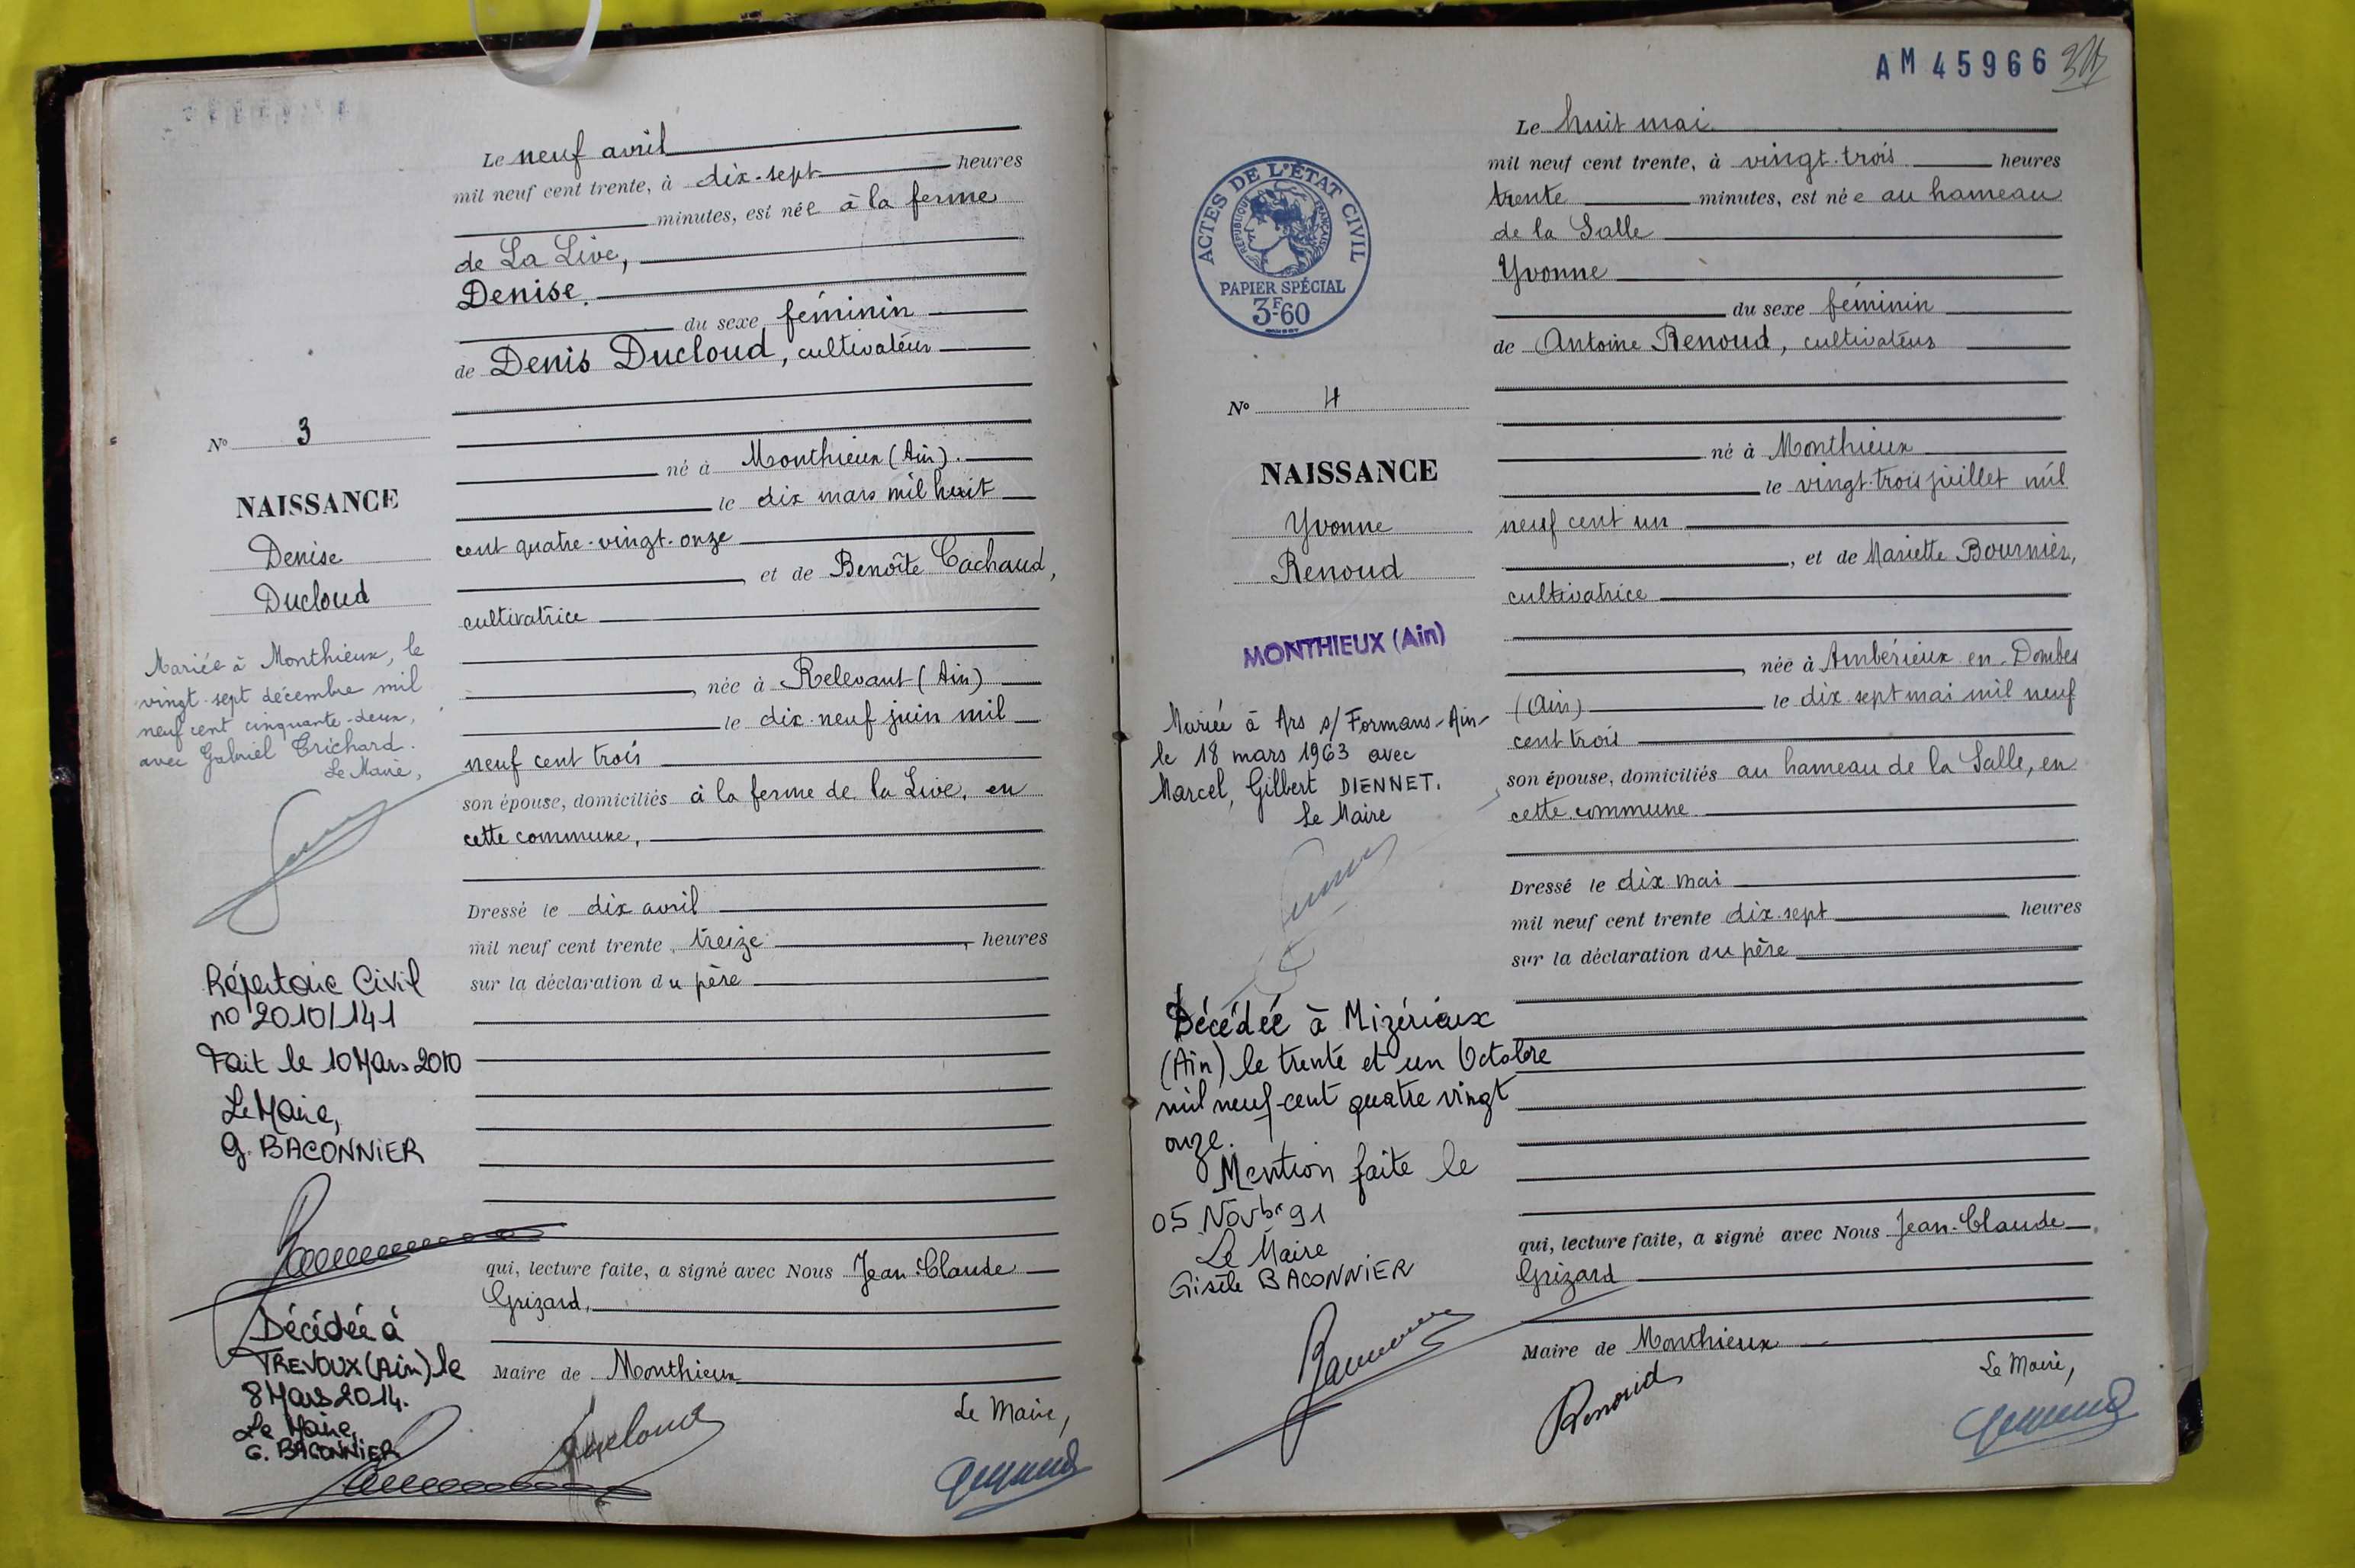 Le neuf avril
mil neuf cent trente, à dix-sept heures
minutes, est née à la ferme
de La Live,
Denise.
du sexe féminin
de Denis Ducloud, cultivateur
né à Monthieux (Ain).
le dix mars mil huit
cent quatre-vingt-onze
et de Benoîte Cachaud,
cultivatrice
née à Relevant (Ain)
le dix-neuf juin mil
neuf cent trois
son épouse, domiciliés à la ferme de la Live, en
cette commune,
Dressé le dix avril
mil neuf cent trente, treize heures
sur la déclaration du père
qui, lecture faite, a signé avec Nous Jean-Claude
Grizard,
Maire de Monthieux
Le Maire,
Ducloud
No 3
NAISSANCE
Denise
Ducloud
Mariée à Monthieux, le
vingt-sept décembre mil
neuf cent cinquante-deux,
avec Gabriel Trichard.
Le Maire,
Répertoire Civil
no 2010/141
Fait le 10 Mars 2010
Le Maire,
G. BACONNIER
Décédée à
TREVOUX (Ain) le
8 Mars 2014.
Le Maire,
G. BACONNIER
AM 45966
ACTES DE L'ÉTAT CIVIL
RÉPUBLIQUE FRANÇAISE
PAPIER SPÉCIAL
3F60
No 4
NAISSANCE
Yvonne
Renoud
MONTHIEUX (Ain)
Mariée à Ars s/ Formans-Ain-
le 18 mars 1963 avec
Marcel, Gilbert DIENNET.
Le Maire
Décédée à Mizérieux
(Ain) le trente et un Octobre
mil neuf-cent quatre vingt
onze.
Mention faite le
05 Novbr 91
Le Maire
Gisèle BACONNIER
Le huit mai
mil neuf cent trente, à vingt-trois heures
trente minutes, est née au hameau
de la Salle
Yvonne
du sexe féminin
de Antoine Renoud, cultivateur
né à Monthieux
le vingt-trois juillet mil
neuf cent un
, et de Mariette Bournier,
cultivatrice
, née à Ambérieux-en-Dombes
(Ain) le dix-sept mai mil neuf
cent trois
son épouse, domiciliés au hameau de la Salle, en
cette commune
Dressé le dix mai
mil neuf cent trente dix-sept heures
sur la déclaration du père
qui, lecture faite, a signé avec Nous Jean-Claude
Grizard
Maire de Monthieux
Le Maire,
Renoud